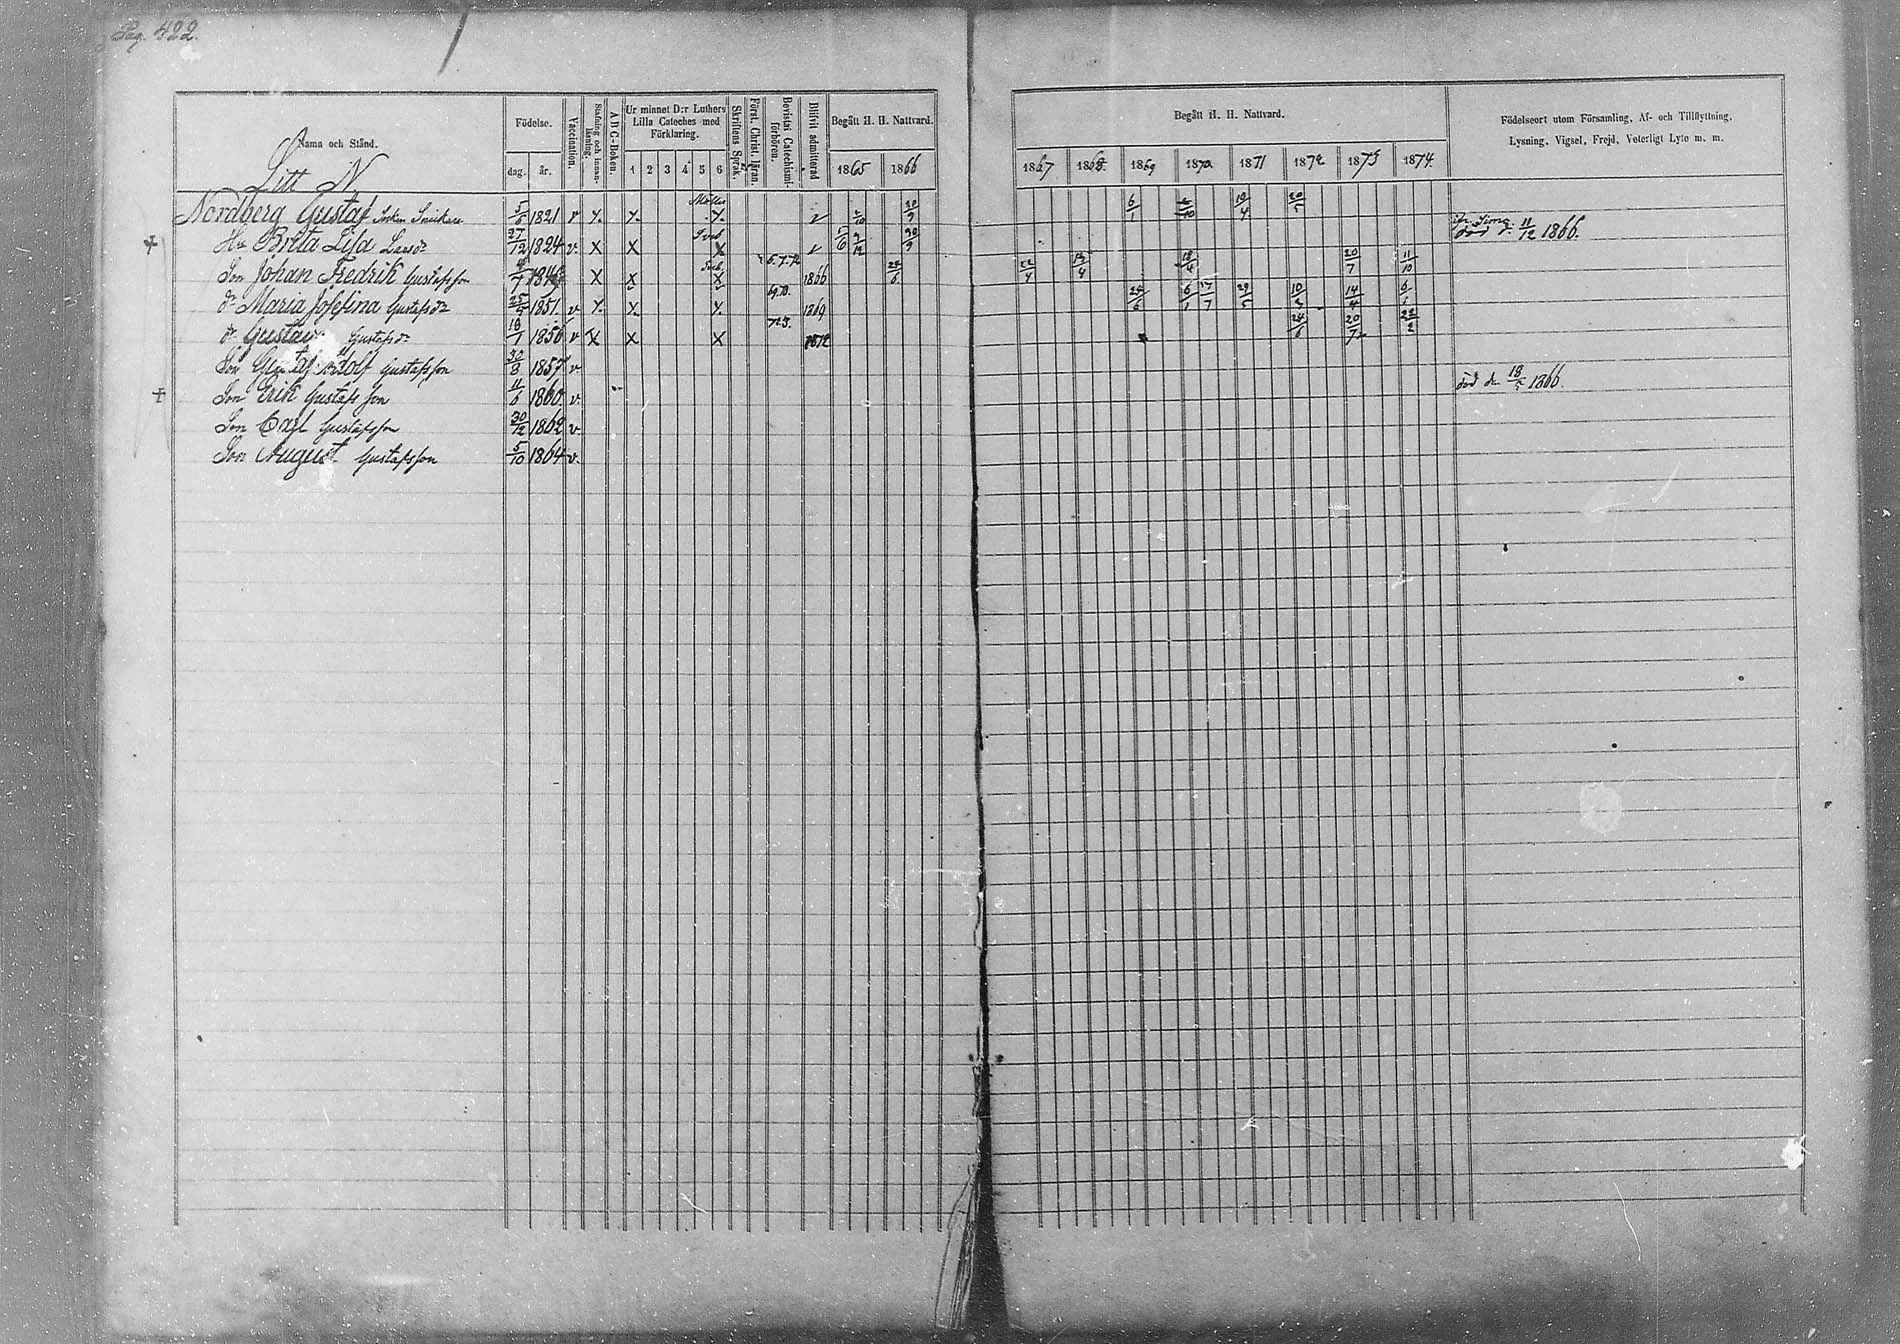 Pag. 422.
Namn och Stånd.
Födelse.
dag. år.
Vaccination.
Stafning och innan-läsning.
A B C-Boken.
Ur minnet D:r Luthers Lilla Cateches med Förklaring.
1 2 3 4 5 6
Skriftens Språk.
Först. Christ. läran.
Bevistat Catechismi-förhören.
Blifvit admitterad
Begått H. H. Nattvard.
1865 1866
Begått H. H. Nattvard.
1867 1868 1869 1870 1871 1872 1873 1874.
Födelseort utom Församling, Af- och Tillflyttning,
Lysning, Vigsel, Frejd, Veterligt Lyte m. m.
Litt N
Nordberg Gustaf Socken Snickare 5/6 1821 v X X X v 2/10 30/9 6/1 19/4 20/5
Hu Brita Lisa Larsdr 27/12 1824 v. X X X v 9/12 30/9 död d. 11/12 1866.
Son Johan Fredrik Gustafsson X X X 1866 24/6 22/4 13/4 18/4 20/7 11/10
dr Maria Josefina Gustafsdr 25/5 1851. v X X X 69.70. 1869 24/6 6/1 17/7 29/5 14/4 6/1
dr Gustava Gustafsdr 16/1 1856 v X X X 723. 1872 24/6 20/7 22/2
Son Gustaf Adolf Gustafsson 30/8 1857 v.
Son Erik Gustafsson 11/6 1860 v. död den 18/5 1866.
Son Carl Gustafsson 30/12 1862 v.
Son August Gustafsson 5/10 1864 v.